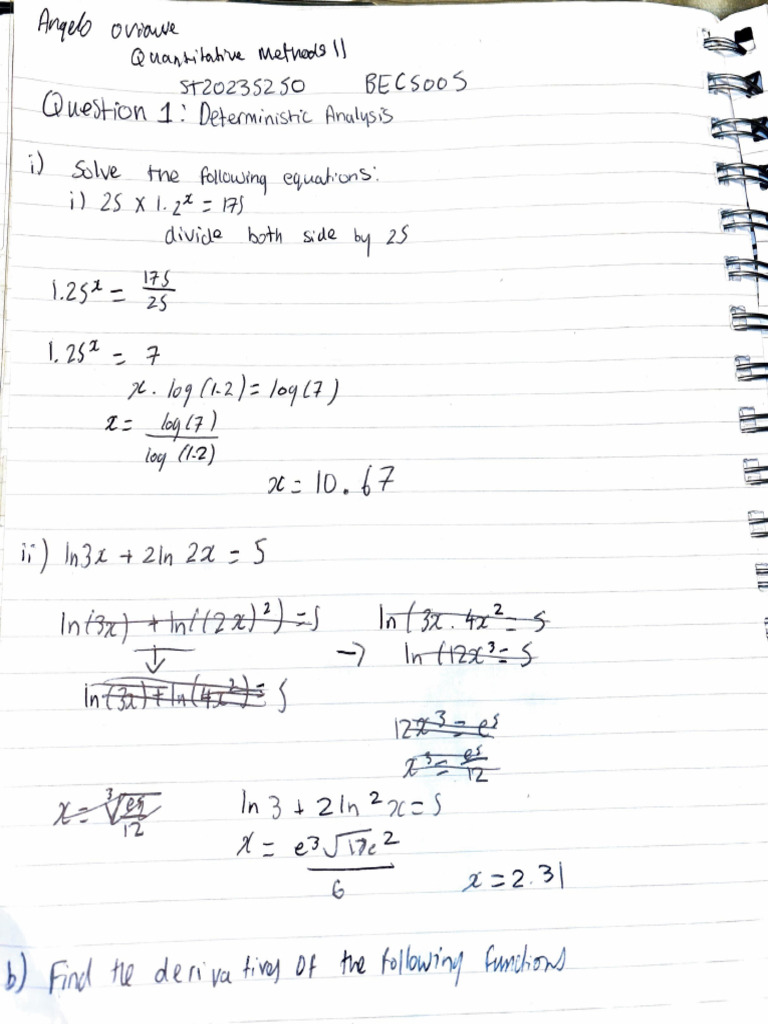 Angelo oviawe
Quantitative Methods II
ST20235250 BEC5005
Question 1: Deterministic Analysis
i) Solve the following equations:
i) 25 x 1.2ˣ = 175
divide both side by 25
1.25ˣ = 175/25
1.25ˣ = 7
x. log(1.2) = log(7)
x = log(7)/log(1.2)
x = 10.67
ii) ln3x + 2ln 2x = 5
ln(3x) + ln((2x)²) = 5 ln(3x. 4x² = 5
→ ln(12x³ = 5
ln(3x) + ln(4x²) = 5
12x³ = e⁵
x³ = e⁵/12
x = ³√e⁵/12 ln 3 + 2 ln ²x = 5
x = e³√ 2/6 x = 2.31
b) Find the derivatives of the following functions